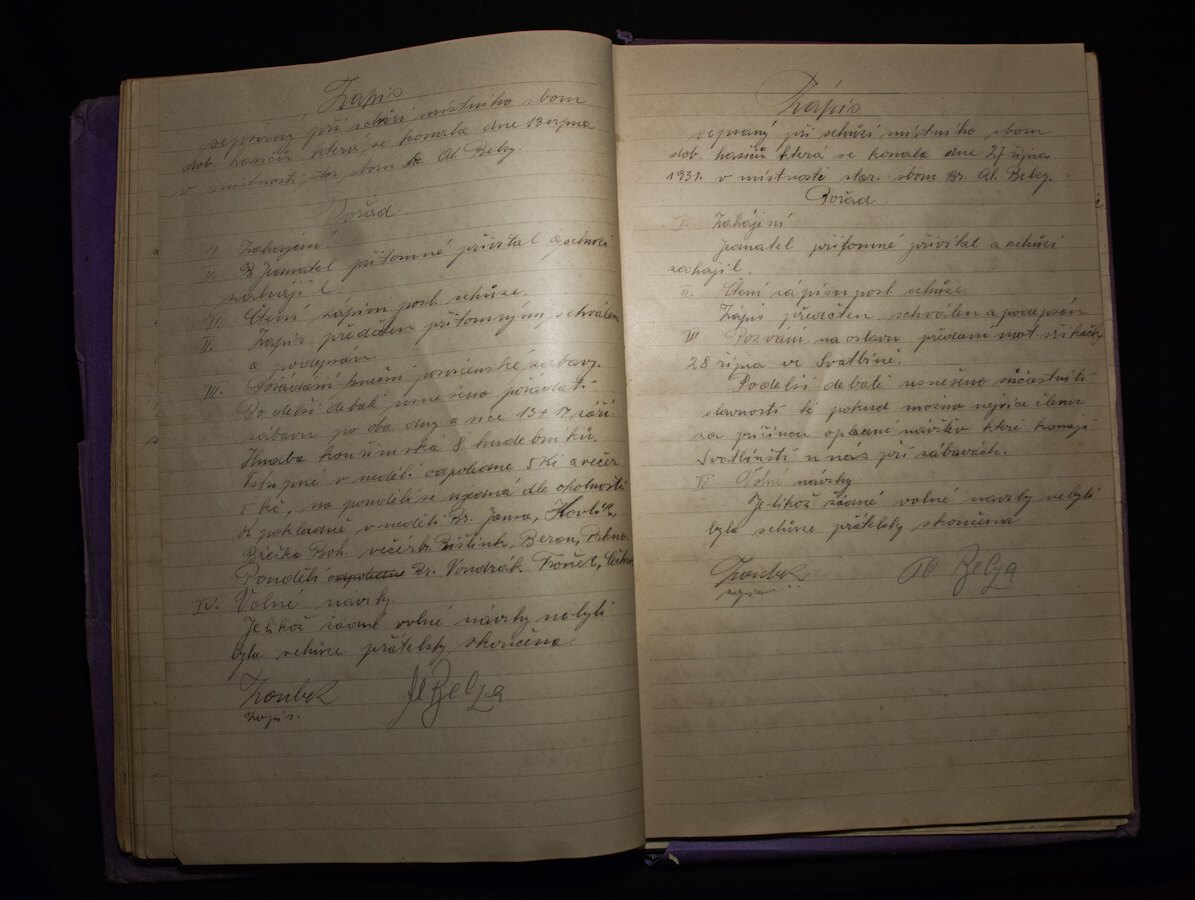 Zápis
sepsaný při schůzi místního sboru
dob. hasičů která se konala dne 13 srpna
v místnosti star. sboru br. Al. Belzy.
Pořad
I. Zahájení.
Jednatel přítomné přivítal a schůzi
zahájil.
II. Čtení zápisu posl. schůze.
II. Zápis předčten přítomnými schválen
a podepsán
III. Pořádání taneční posvícenské zábavy.
Po delší debatě usneseno pořádat
zábavu po oba dny a sice 13 + 17 září.
Hudba kouřimská 8 hudebníků.
Vstupné v neděli odpoledne 5 Kč a večer
Kč, na pondělí se ujedná dle okolností
K pokladně v neděli Br. Jansa, Havlík,
Boh. večer br. Beran,
Pondělí odpoledne Br. Vondrák.
IV. Volné návrhy.
Jelikož žádné volné návrhy nebyli
byla schůze přátelsky skončena.
Zoubek Al Belza
zapis.
Zápis
sepsaný při schůzi místního sboru
dob. hasičů která se konala dne 27 října
1931. v místnosti star. sboru Br. Al. Belzy.
Pořad
I. Zahájení
Jednatel přítomné přivítal a schůzi
zahájil.
II. Čtení zápisu posl. schůze.
Zápis předčten schválen a podepsán
III Pozvání na oslavu předání mot. stříkačky
28 října ve Svatbíně.
Po delší debatě usneseno súčastniti
slavnosti té pokud možno nejvíce členů
za příčinou oplacení návštěv které konají
Svatbínští u nás při zábavách.
IV. Volné návrhy
Jelikož žádné volné návrhy nebyli
byla schůze přátelsky skončena
Zoubek Al. Belza